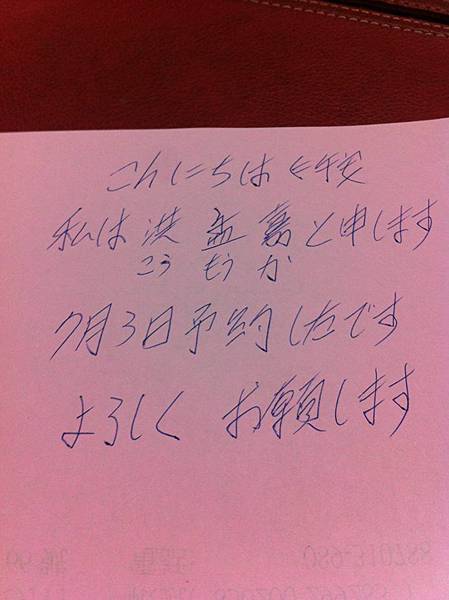 こんにちは ←午安
私は 洪 孟 嘉 と申します
こう もう か
7月3日予約したです
よろしく お願します